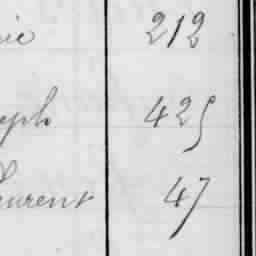 ie 212
eph 425
Laurent 47